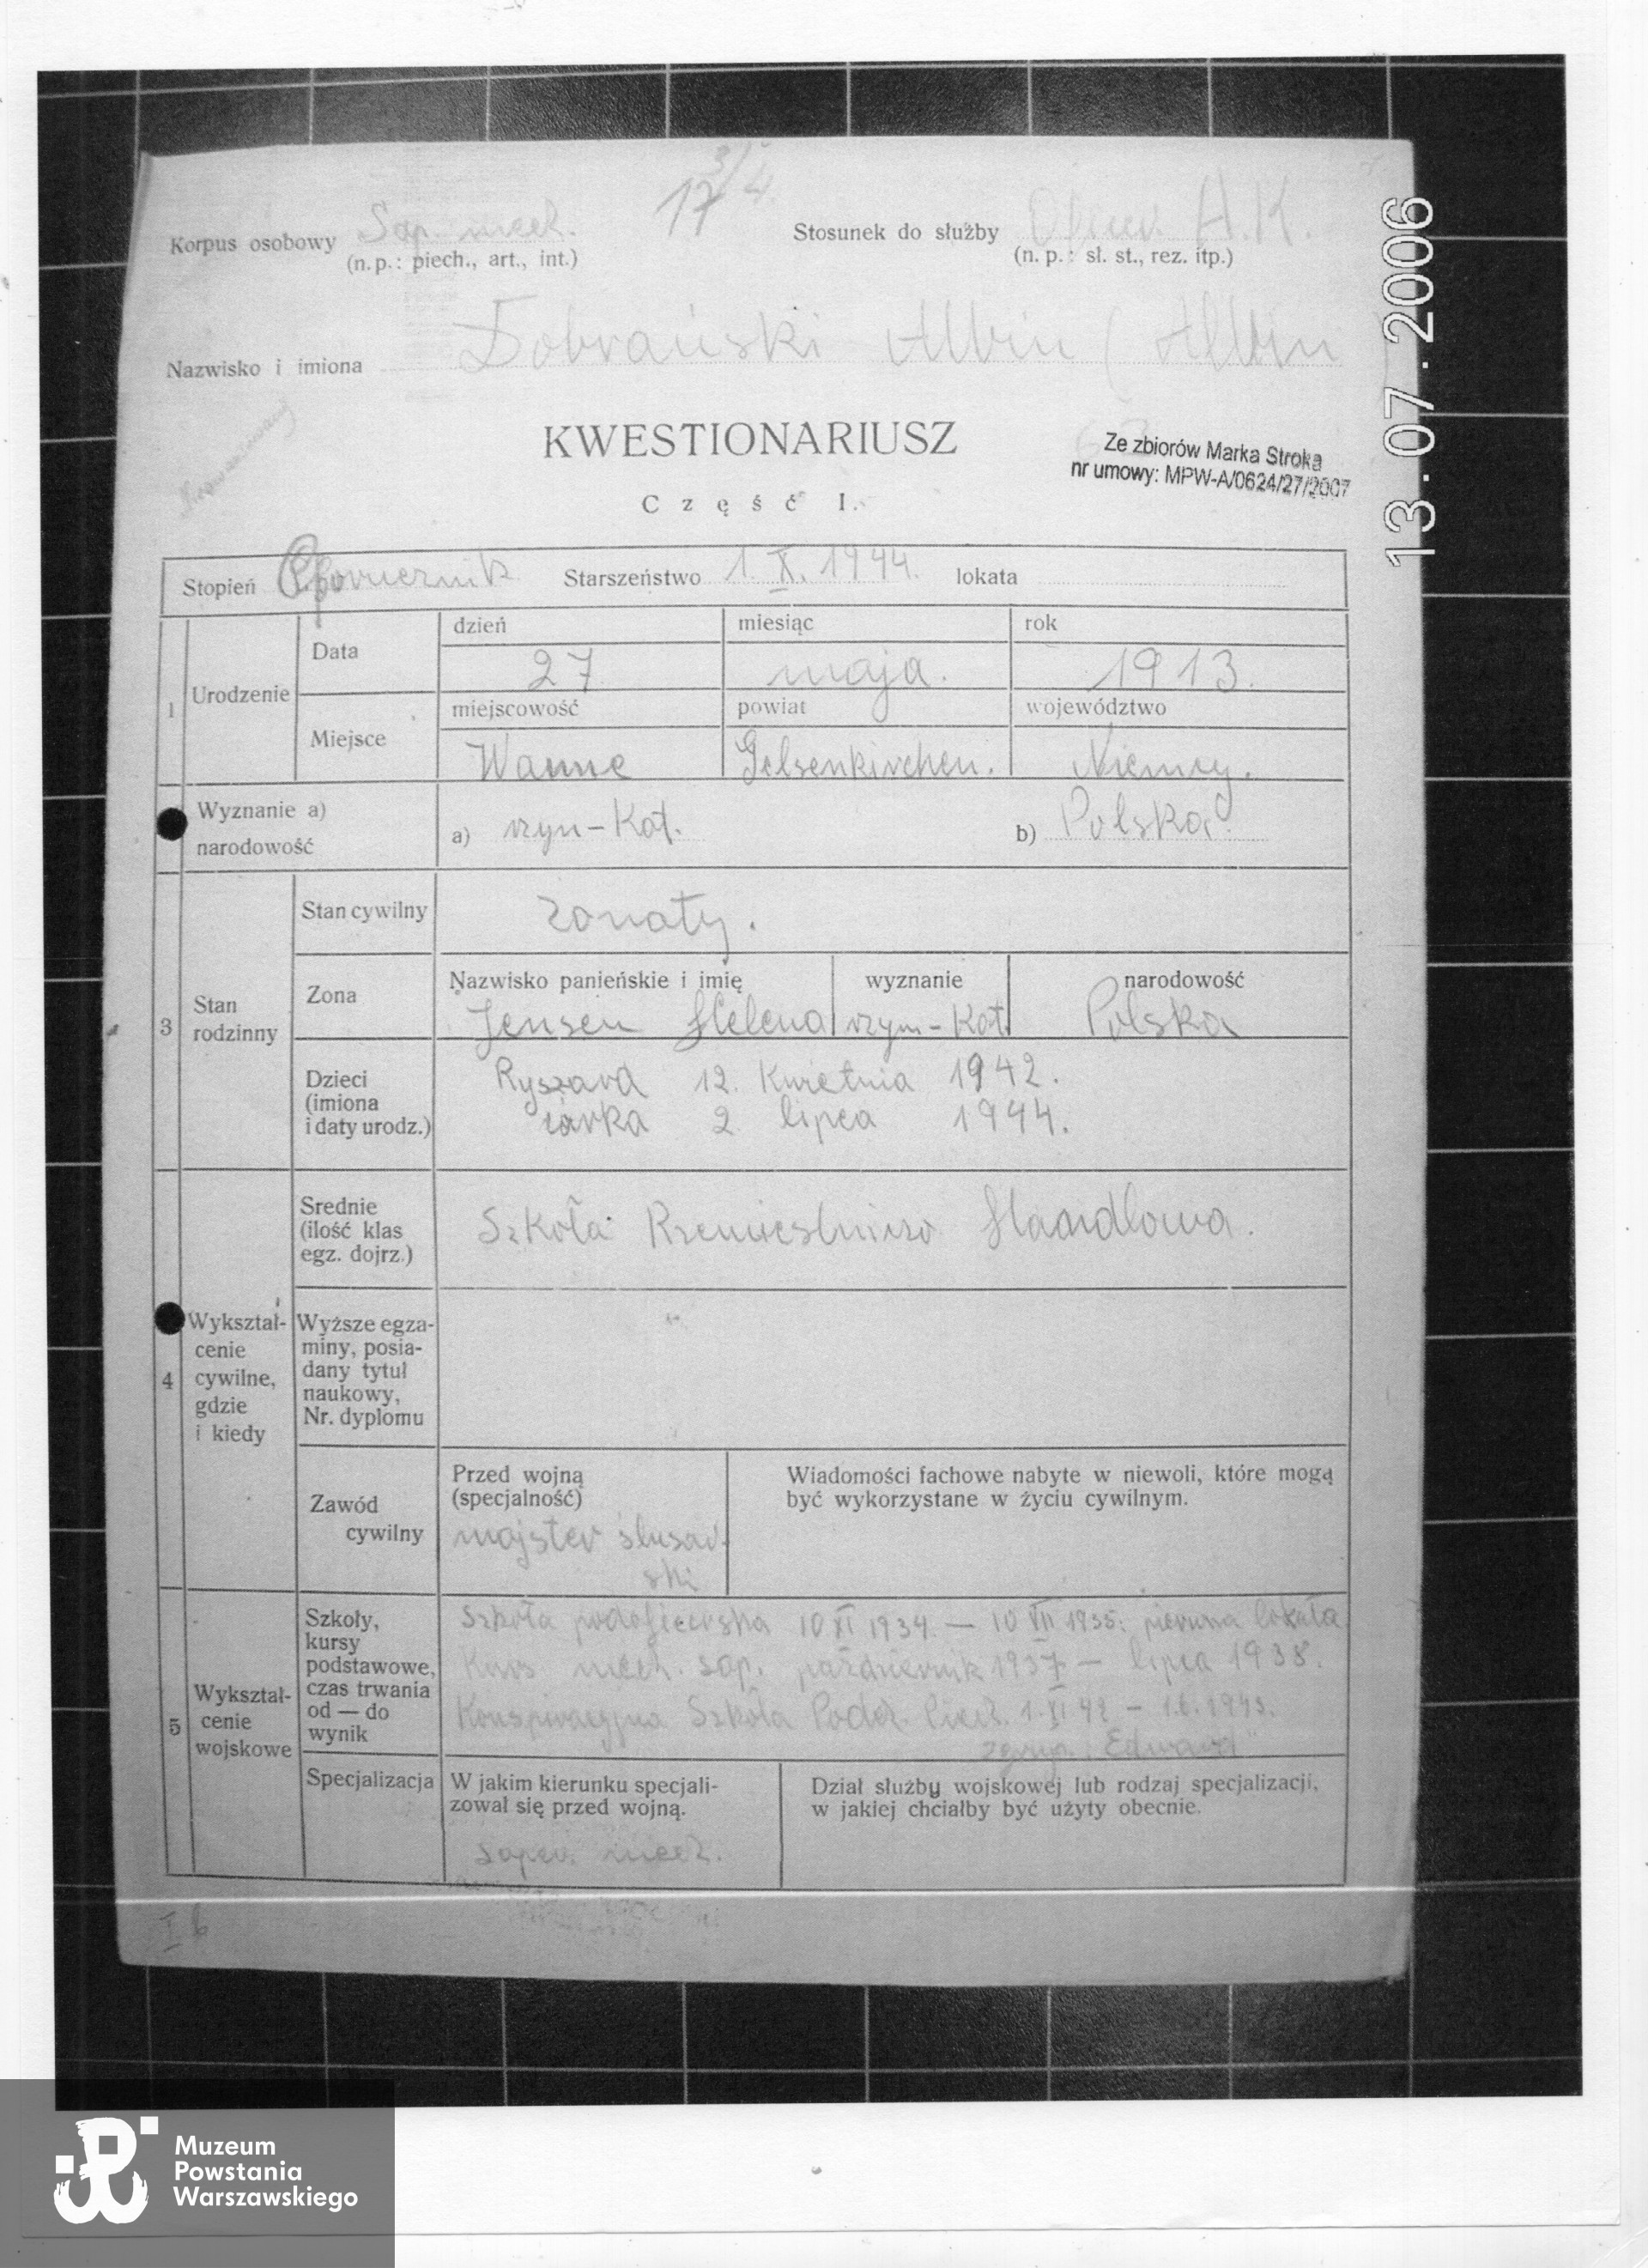 17 3/4.
Korpus osobowy Sap. mech. Stosunek do służby A.K.
(n.p.: piech., art., int.) (n. p.: sł. st., rez. itp.)
Nazwisko i imiona Dobrański Albin (Albin
KWESTIONARIUSZ
Część I.
Ze zbiorów Marka Stroka
nr umowy: MPW-A/0624/27/2007
13.07.2006
Stopień Starszeństwo 1. X. 1944. lokata
1 Urodzenie Data dzień miesiąc rok
27 maja. 1913.
Miejsce miejscowość powiat województwo
Wanne Gelsenkirchen. Niemcy.
Wyznanie a) narodowość a) rzym-Kat. b) Polska
3 Stan rodzinny Stan cywilny żonaty.
Zona Nazwisko panieńskie i imię wyznanie narodowość
Jensen Helena rzym-Kat. Polska
Dzieci (imiona i daty urodz.) Ryszard 12. Kwietnia 1942.
2 lipca 1944.
4 Wykształcenie cywilne, gdzie i kiedy
Srednie (ilość klas egz. dojrz.) Szkoła Rzemieślniczo Handlowa.
Wyższe egzaminy, posiadany tytuł naukowy, Nr. dyplomu
Zawód cywilny Przed wojną (specjalność)
majster ślusarski
Wiadomości fachowe nabyte w niewoli, które mogą
być wykorzystane w życiu cywilnym.
5 Wykształcenie wojskowe
Szkoły, kursy podstawowe, czas trwania od — do wynik
Szkoła podoficerska 10 XI 1934. — 10 VII 1935. pierwsza lokata
Kurs mech. sap. październik 1937 — lipca 1938.
Konspiracyjna Szkoła Podch. Piech. 1. XI 42 – 1.6.1943.
zgrup. "Edward"
Specjalizacja W jakim kierunku specjalizował się przed wojną.
saper. mech.
Dział służby wojskowej lub rodzaj specjalizacji,
w jakiej chciałby być użyty obecnie.
I b
Muzeum
Powstania
Warszawskiego